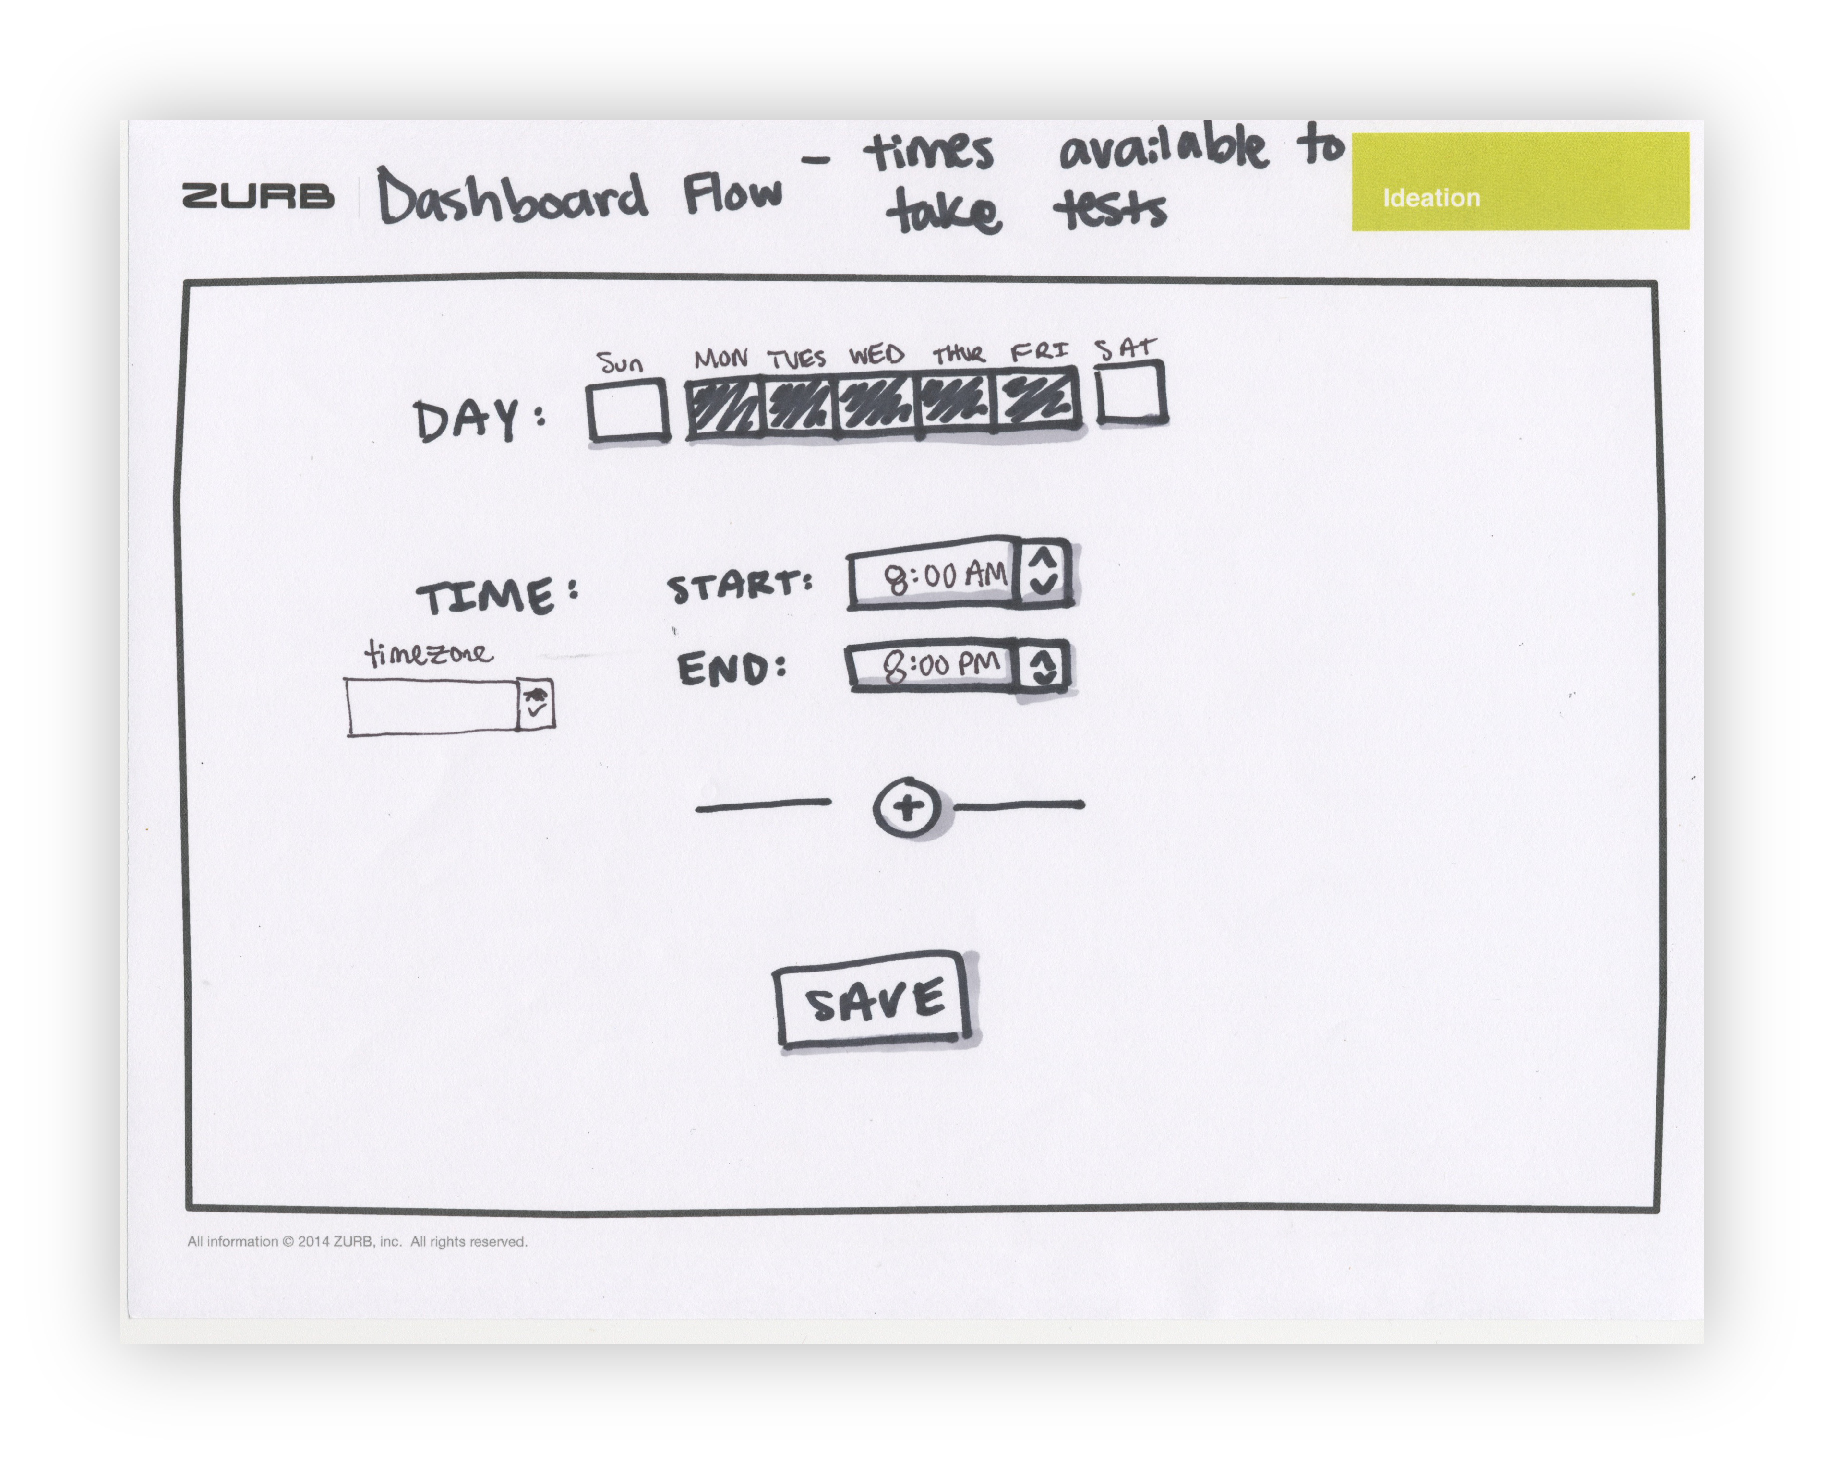 ZURB
Dashboard Flow - times available to
take tests
Ideation
Sun MON TUES WED THUR FRI SAT
DAY:
TIME: START: 8:00 AM
timezone
END: 8:00 PM
+
SAVE
All information © 2014 ZURB, inc. All rights reserved.